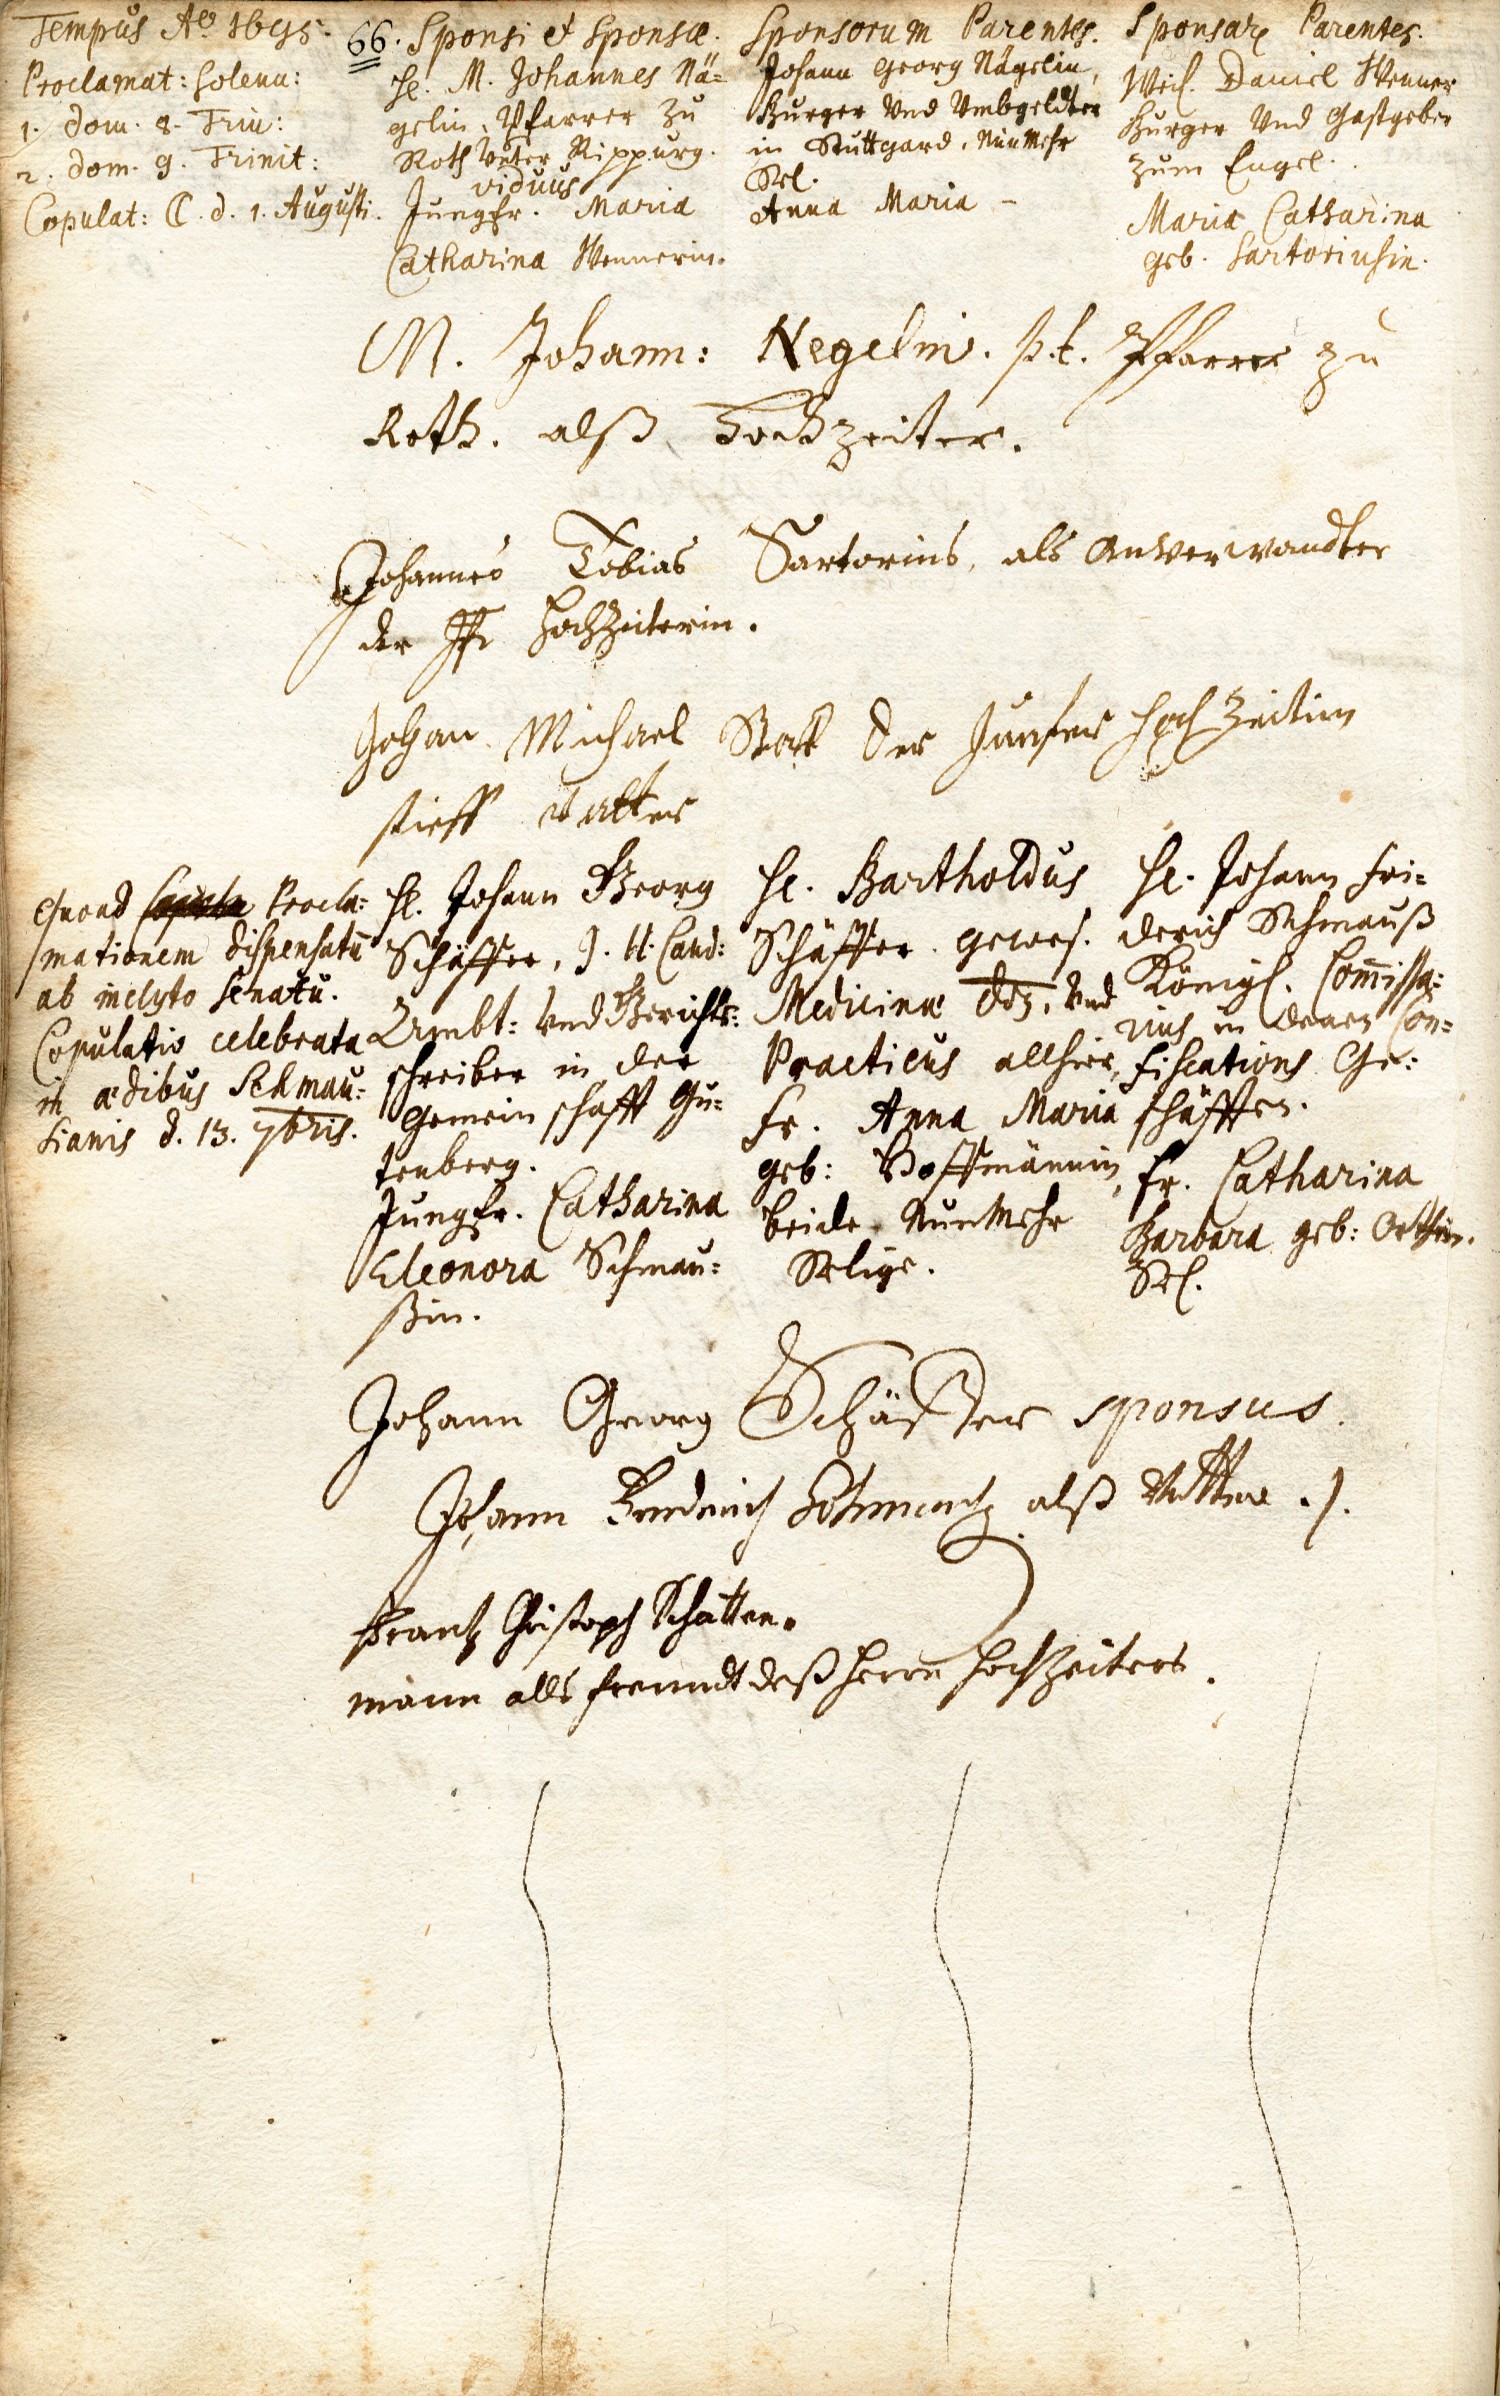 Tempus Ao 1695.
Proclamat: solenn:
1. dom. 8. Trin:
2. dom. 9. Trinit:
Copulat: d. 1. Augusti.
66. Sponsi et Sponsæ.
H. M. Johannes Nä=
gelin, Pfarrer zu
Roth Unter Rippurg.
viduus
Jungfr. Maria
Catharina Wennerin.
Sponsorum Parentes.
Johann Georg Nägelin,
Burger Und Umbgeldter
in Stuttgard, Nunmehr
Sel.
Anna Maria –
Sponsar Parentes.
Weil. Daniel Wenner
Burger Und Gastgeber
zum Engel.
Maria Catharina
geb. Sartoriusin.
M. Johann: Negelin. p.t. Pfarrer zu
Roth. alß Hochzeiter.
Johannes Tobias Sartorius, als Anverwandter
der Jfr Hochzeiterin.
Johan Michael der Junfer Hochzeitin
stieff Vatter
Quoad Procla=
mationem dispensatū
ab inclyto Senatu.
Copulatio celebrata
in ædibus Schmau=
sianis d. 13. 7bris.
H. Johann Georg
Schäffer, J. U. Cand:
Ambt= Und Gerichts=
schreiber in der
Gemeinschafft Gu=
tenberg.
Jungfr. Catharina
Eleonora Schmau=
ßin.
H. Bartholdus
Schäffer gewes.
Medicinæ Und
Practicus allhier,
Fr. Anna Maria
geb: Hoffmännin,
beide Nunmehr
Selige.
H. Johann Fri=
derich Schmauß
Königl. Com̄issa=
rius in denen Con=
fiscations Ge=
schäfften.
Fr. Catharina
Barbara geb:
Sel.
Johann Georg Schäffer sponsus.
Johann Friderich Schmauß alß Vatter.
Frantz Christoph Schatten=
mann alls freundt deß Herrn Hochzeiters.